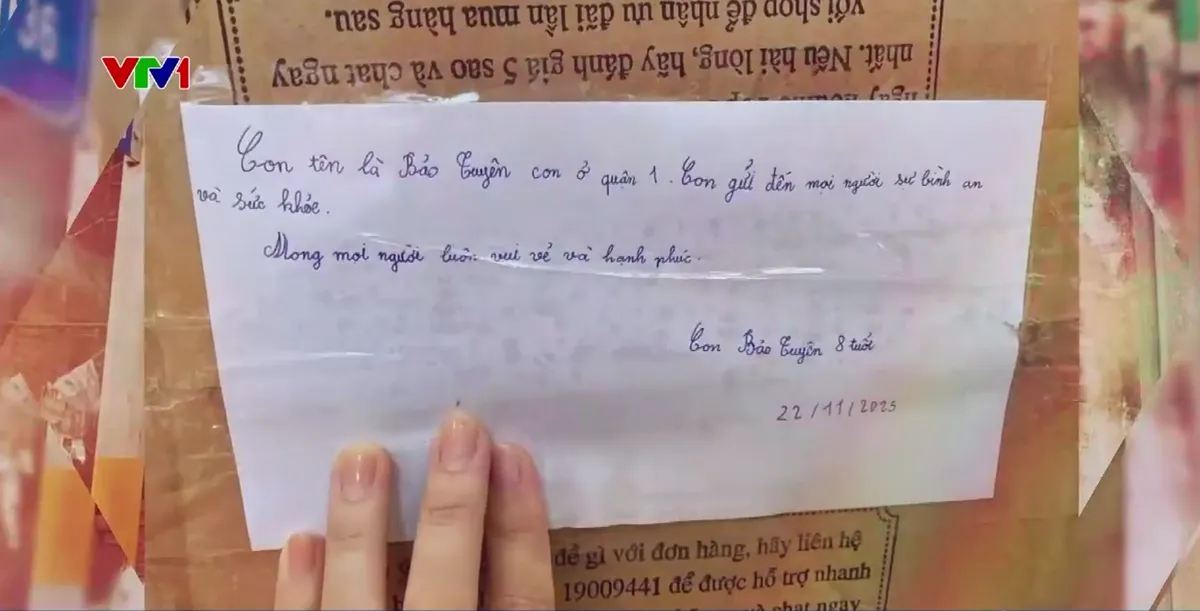 36
VTV1
với shop để nhận ưu đãi lần mua hàng sau.
nhất. Nếu hài lòng, hãy đánh giá 5 sao và chat ngay
ngay
Con tên là Bảo Tuyên con ở quận 1. Con gửi đến mọi người sự bình an
và sức khỏe.
Mong mọi người luôn vui vẻ và hạnh phúc.
Con Bảo Tuyên 8 tuổi
22/11/2025
đề gì với đơn hàng, hãy liên hệ
19009441 để được hỗ trợ nhanh
và chat ngay